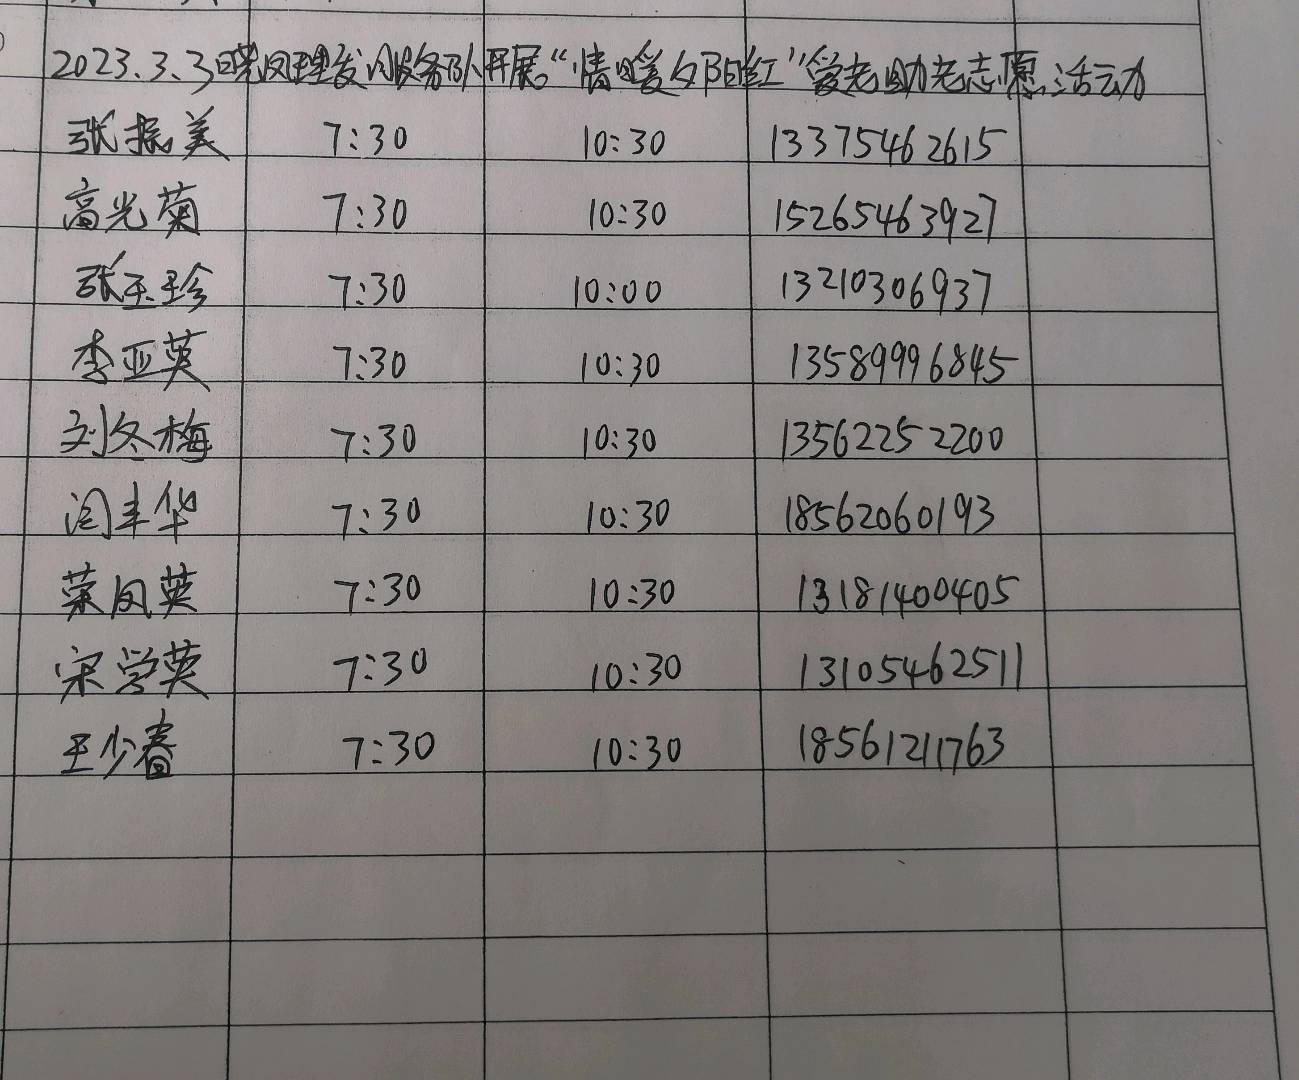 2023.3.3晓凤理发服务队开展“情暖夕阳红”爱老助老志愿活动
张振美 7:30 10:30 13375462615
高光菊 7:30 10:30 15265463927
张玉珍 7:30 10:00 13210306937
李亚英 7:30 10:30 13589996845
刘冬梅 7:30 10:30 13562252200
闫丰华 7:30 10:30 18562060193
荣凤英 7:30 10:30 13181400405
宋学英 7:30 10:30 13105462511
王少春 7:30 10:30 18561211763